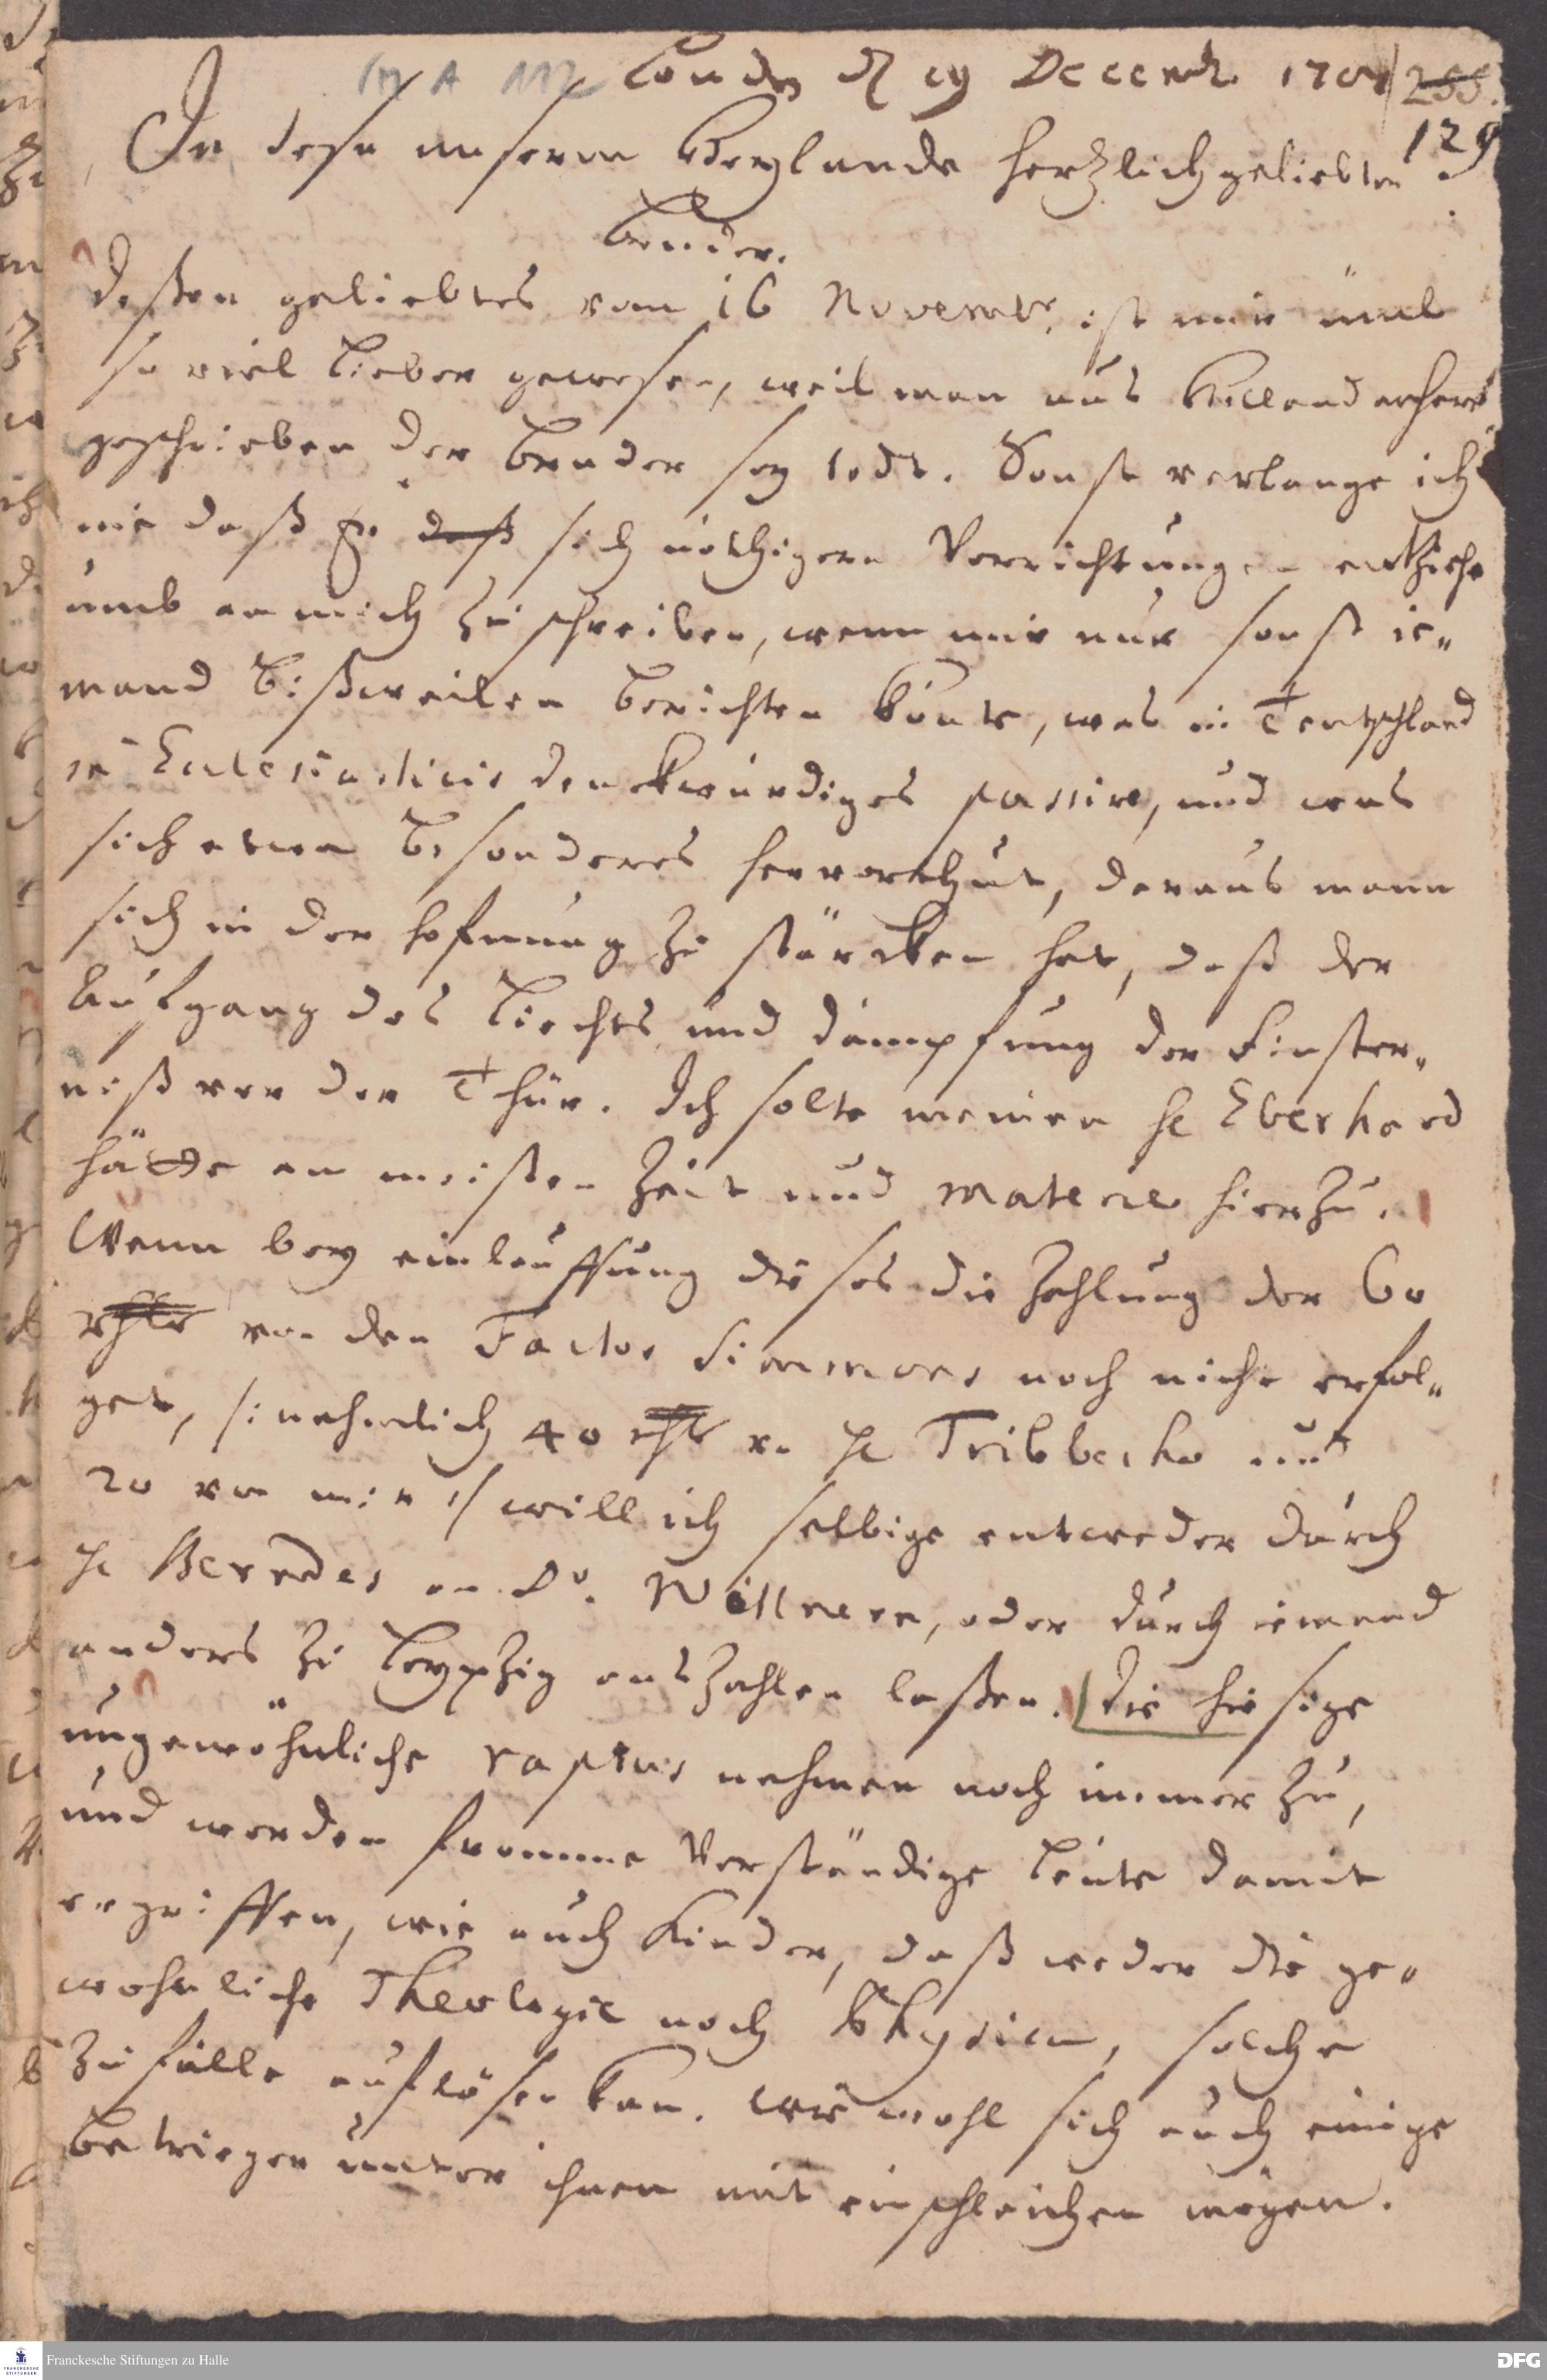 III A 112 London d 19 Decembr. 1707 255.
129
In dem unserm Heylande hertzlich geliebter
Bruder.
Deßen geliebtes vom 16 Novembr, ist mir umb
so viel lieber gewesen, weil man aus Holland anhero
geschrieben der Bruder sey todt. Sonst verlange ich
nie daß Er daß sich nöthigern Verrichtungen entziehe
umb an mich zu schreiben, wenn mir nur sonst ie-
mand bißweilen berichten könte, was in Teutschland
in Ecclesiasticis denckwürdiges passire, und was
sich etwa besonderes hervorthut, daraus mann
sich in der Hofnung zu stärcken hat, daß der
Aufgang des Liechts und dämpfung der Finster-
niß vor der Thür. Ich solte meinen H Eberhard
hätte am meisten Zeit und materie hierzu.
Wenn bey einlauffung dieses die Zahlung der 60
rthlr von den Factor Simmers noch nicht erfol-
get, /: nehmlich 40 rthlr v. H Tribbecho und
20 von mir :/ will ich selbige entweder durch
H Berndes an D. Wöllnern, oder durch iemand
anders zu Leypzig auszahlen laßen. Die hiesige
ungewöhnliche raptus nehmen noch immer zu,
und werden fromme Verständige Leute damit
ergriffen, wie auch Kinder, daß weder die ge-
wohnliche Theologie noch Physica, solche
Zufälle auflösen kan. wiewohl sich auch einige
Betrieger unter ihnen mit einschleichen mögen.
Franckesche Stiftungen zu Halle
DFG